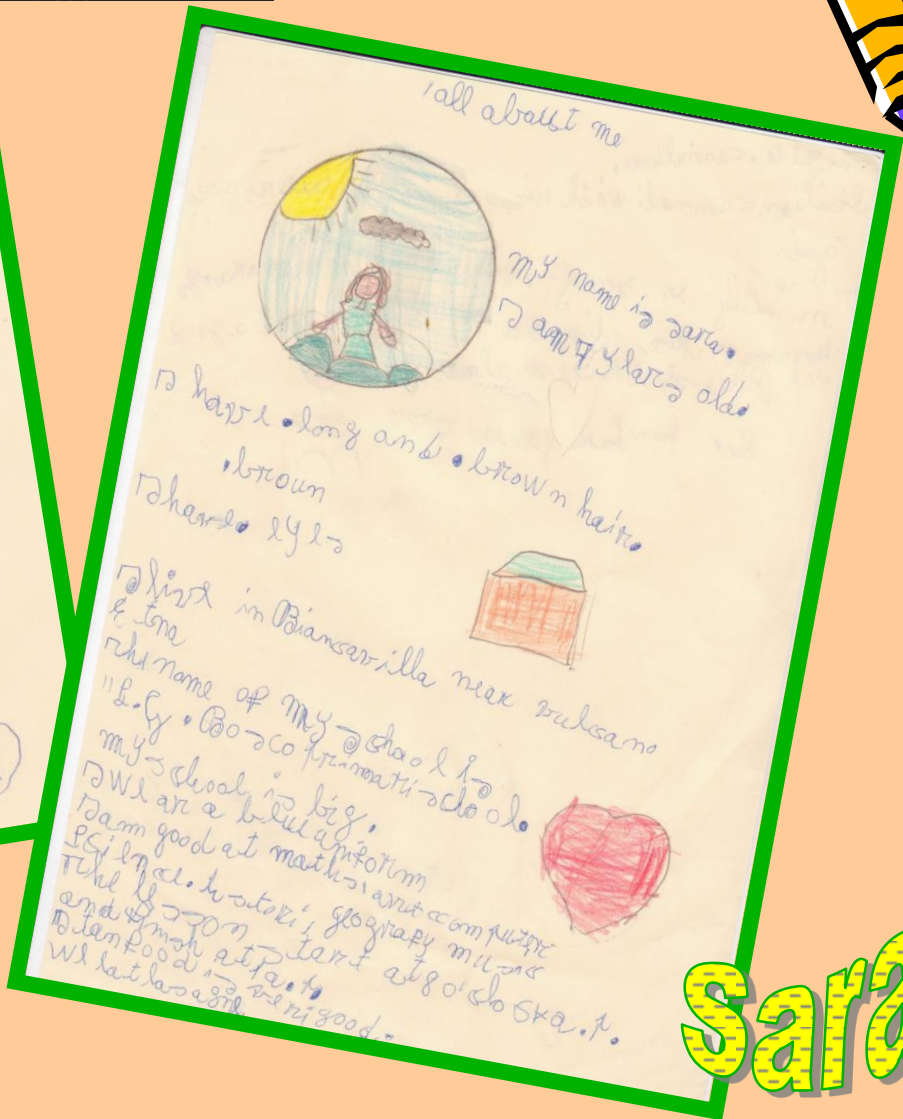 all about me
my name is sara.
I am 7 years old.
I have long and brown hair.
broun
I have eyes
I live in Biancavilla near vulcano
Etna
The name of my school is
"S.G. Bosco primari school.
my school is big.
I wear a blu uniform
I am good at maths, art computer
science. history, geograpy music
The lesson start at 8 o'clock a.m.
and finish at
Italian food is veri good.
we eat lasagne
Sara